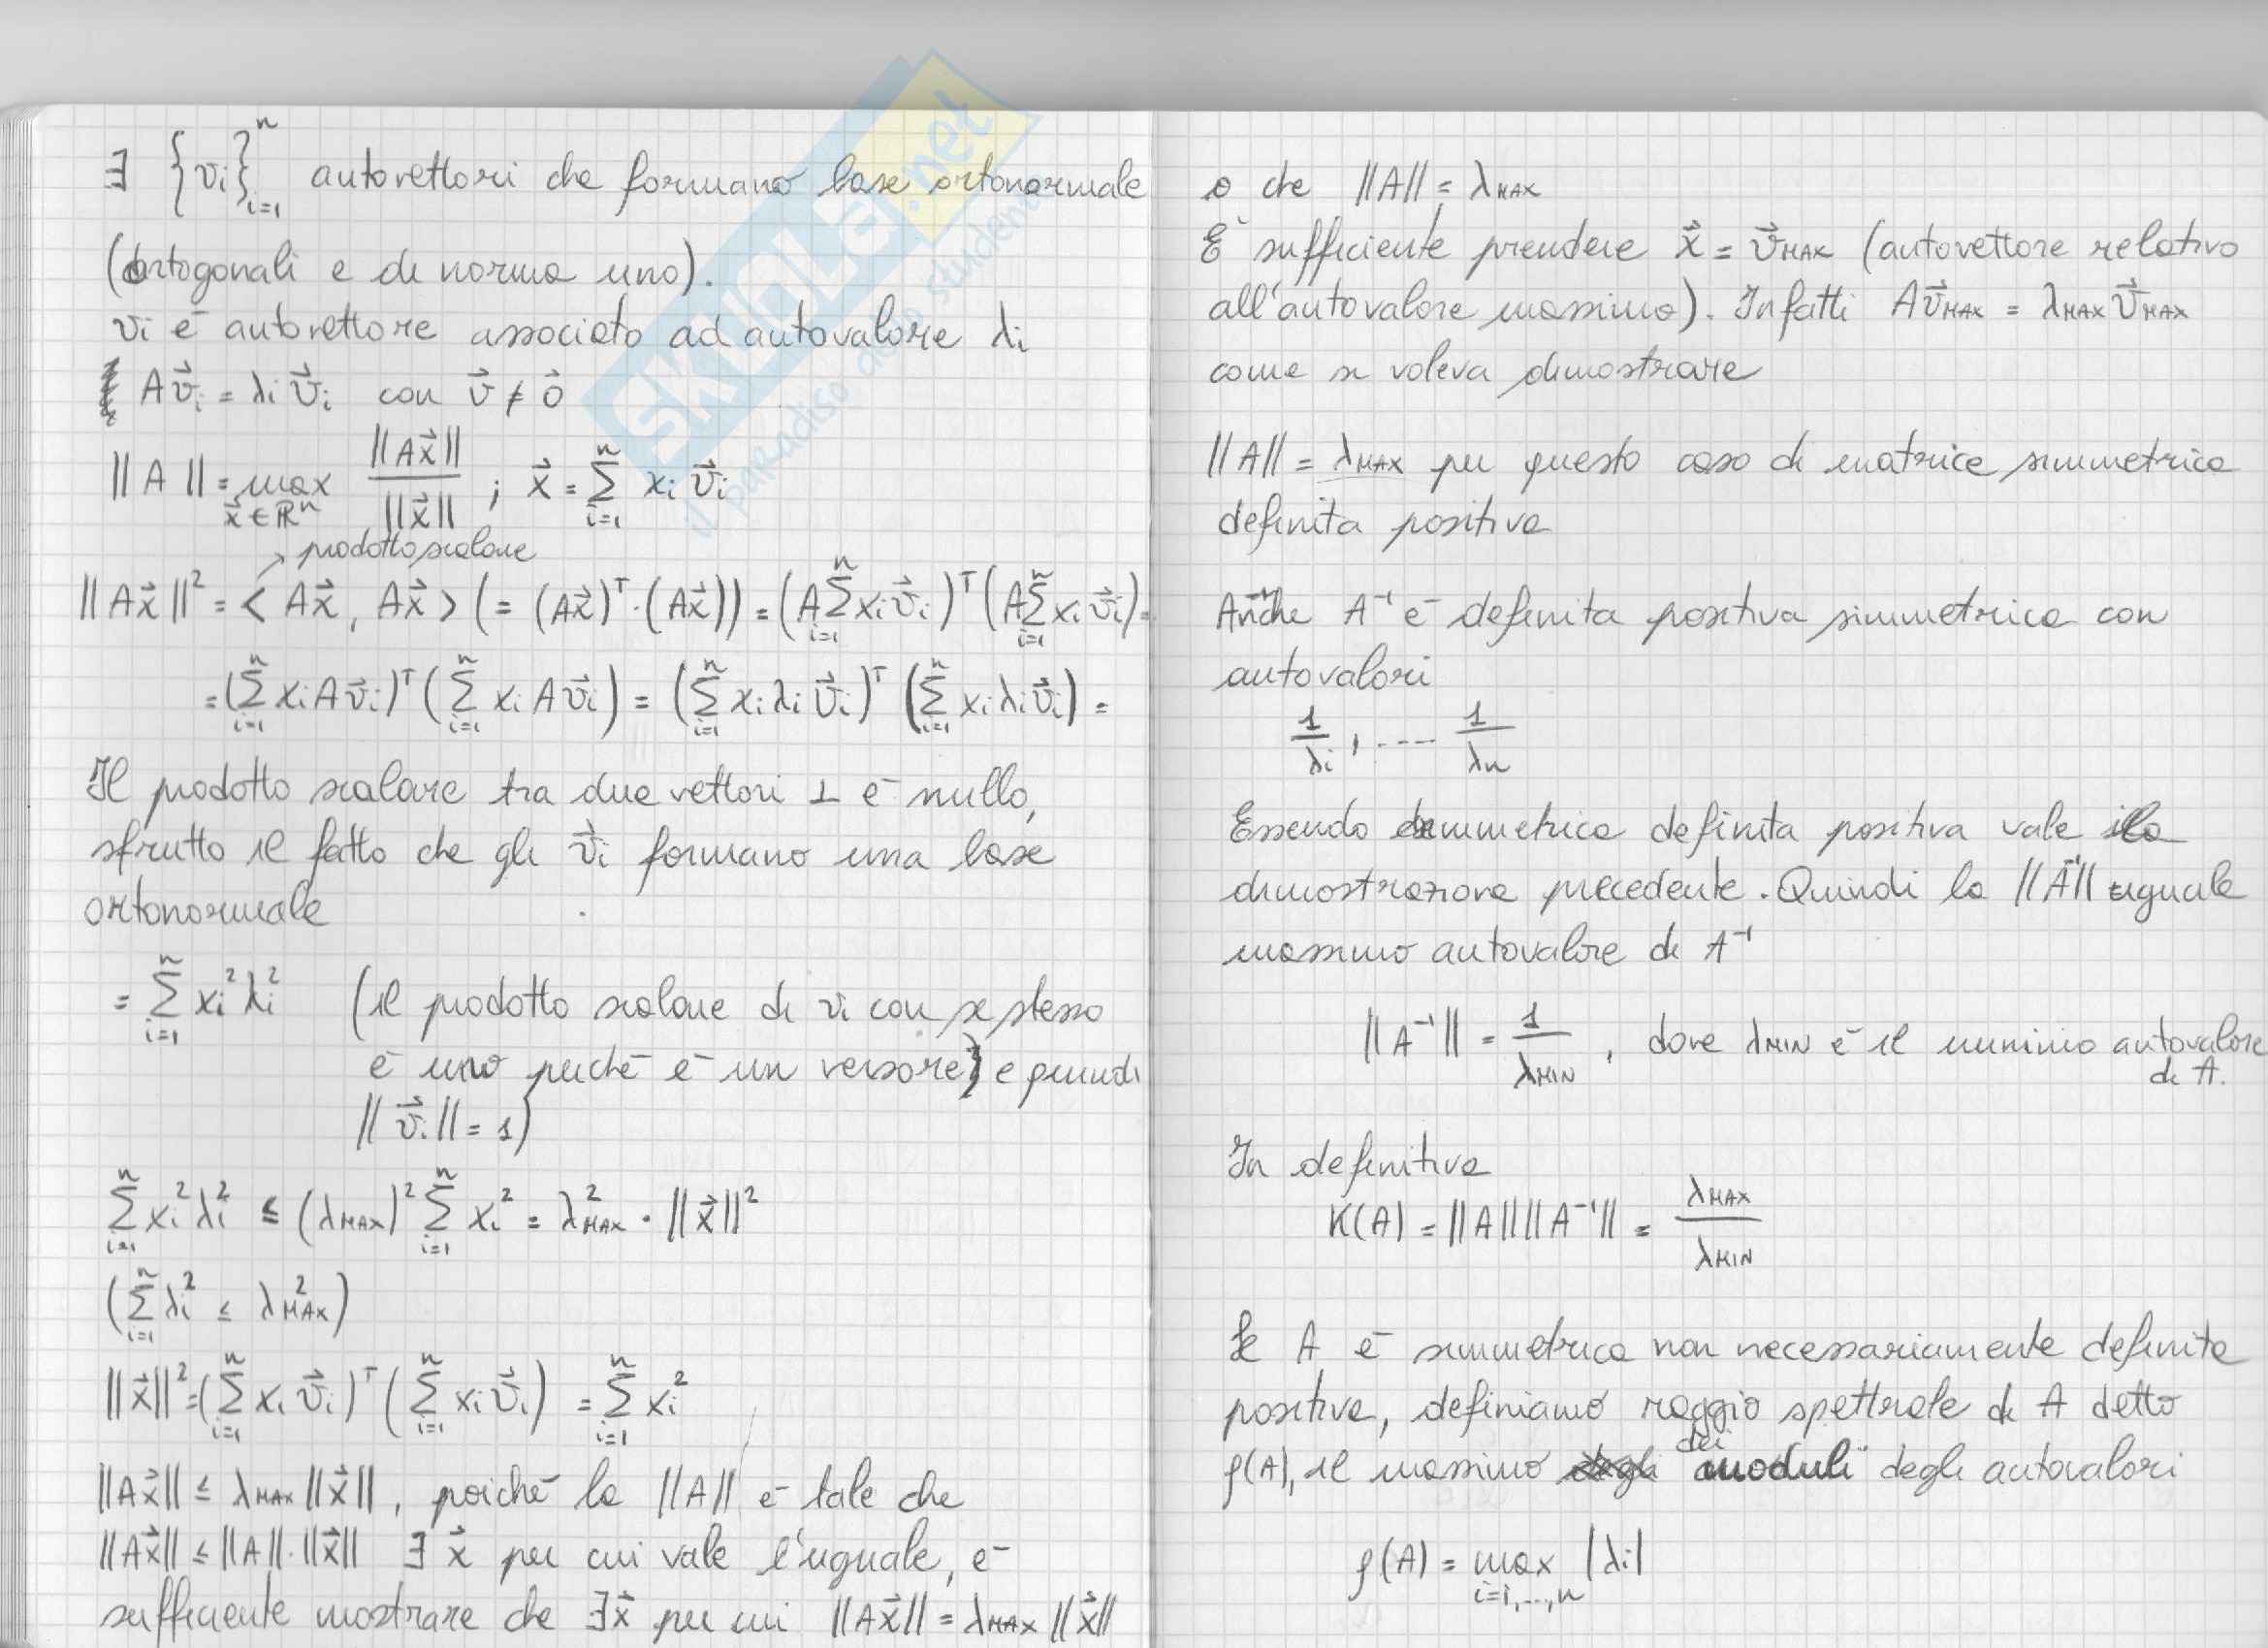 ∃ {vi}ⁿᵢ₌₁ autovettori che formano base ortonormale
(ortogonali e di norma uno).
vi è autovettore associato ad autovalore λi
Av⃗i = λi v⃗i con v⃗ ≠ 0⃗
||A|| = max_{x⃗∈ℝⁿ} ||Ax⃗|| / ||x⃗|| ; x⃗ = Σⁿᵢ₌₁ xi v⃗i
→ prodotto scalare
||Ax⃗||² = < Ax⃗, Ax⃗ > (= (Ax⃗)ᵀ·(Ax⃗)) = (AΣⁿᵢ₌₁ xi v⃗i)ᵀ (AΣⁿᵢ₌₁ xi v⃗i) =
= (Σⁿᵢ₌₁ xi A v⃗i)ᵀ (Σⁿᵢ₌₁ xi A v⃗i) = (Σⁿᵢ₌₁ xi λi v⃗i)ᵀ (Σⁿᵢ₌₁ xi λi v⃗i) =
Il prodotto scalare tra due vettori ⊥ è nullo,
sfrutto il fatto che gli v⃗i formano una base
ortonormale
= Σⁿᵢ₌₁ xi² λi² (il prodotto scalare di vi con se stesso
è uno perché è un versore) e quindi
||v⃗i|| = 1)
Σⁿᵢ₌₁ xi² λi² ≤ (λMAX)² Σⁿᵢ₌₁ xi² = λ²MAX · ||x⃗||²
(Σⁿᵢ₌₁ λi² ≤ λ²MAX)
||x⃗||² = (Σⁿᵢ₌₁ xi v⃗i)ᵀ (Σⁿᵢ₌₁ xi v⃗i) = Σⁿᵢ₌₁ xi²
||Ax⃗|| ≤ λMAX ||x⃗||, poiché la ||A|| è tale che
||Ax⃗|| ≤ ||A||·||x⃗|| ∃ x⃗ per cui vale l'uguale, è
sufficiente mostrare che ∃x⃗ per cui ||Ax⃗|| = λMAX ||x⃗||
o che ||A|| = λMAX
È sufficiente prendere x⃗ = v⃗MAX (autovettore relativo
all'autovalore massimo). Infatti Av⃗MAX = λMAX v⃗MAX
come si voleva dimostrare
||A|| = λMAX per questo caso di matrice simmetrica
definita positiva
Anche A⁻¹ è definita positiva simmetrica con
autovalori
1/λi, ---- 1/λn
Essendo simmetrica definita positiva vale la
dimostrazione precedente. Quindi la ||A⁻¹|| uguale
massimo autovalore di A⁻¹
||A⁻¹|| = 1/λMIN , dove λMIN è il minimo autovalore
di A.
In definitiva
K(A) = ||A|| ||A⁻¹|| = λMAX / λMIN
Se A è simmetrica non necessariamente definita
positiva, definiamo raggio spettrale di A detto
ρ(A), il massimo dei moduli degli autovalori
ρ(A) = max_{i=1,...,n} |λi|
SKUOLA.net
il paradiso dello studente